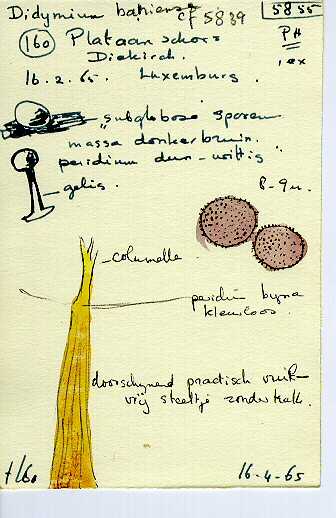 Didymium bahiense cf 5839
5855
160 Plataanschors PH
Diekirch. 1 ex
16.2.65. Luxemburg.
"subgloboze sporen
massa donkerbruin.
peridium dun-wittig"
gelig.
8-9 u.
columella
peridium byna
kleurloos.
doorschynend practisch
vry steeltje zonder kalk.
160
16-4-65